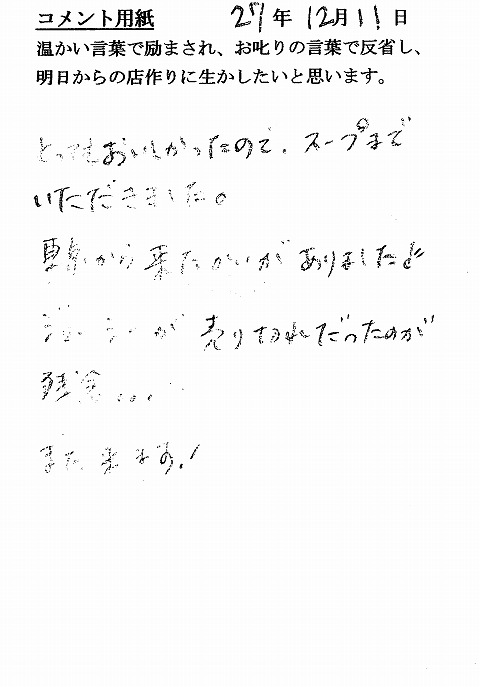 コメント用紙 27年 12月 11日
温かい言葉で励まされ、お叱りの言葉で反省し、
明日からの店作りに生かしたいと思います。
とってもおいしかったので、スープまで
いただきました。
東京から来たかいがありましたよ
が 売り切れだったのが
残念...
また来ます!